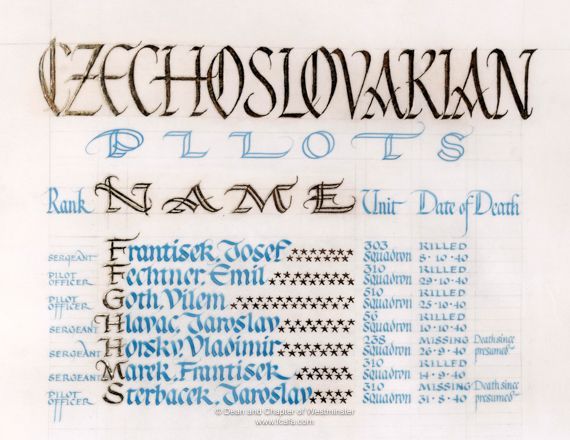 CZECHOSLOVAKIAN
PILOTS
Rank NAME Unit Date of Death
SERGEANT Frantisek, Josef 303 Squadron KILLED 8·10·40
PILOT OFFICER Fechtner, Emil 310 Squadron KILLED 29·10·40
PILOT OFFICER Goth, Vilem Squadron KILLED 25·10·40
SERGEANT Hlavac, Jaroslav 56 Squadron KILLED 10·10·40
SERGEANT Horsky, Vladimir 238 Squadron MISSING 26·9·40 Death since presumed
SERGEANT Marek, Frantisek 310 Squadron KILLED 14·9·40
PILOT OFFICER Sterbacek, Jaroslav 310 Squadron MISSING 31·8·40 Death since presumed
© Dean and Chapter of Westminster
www.fcafa.com